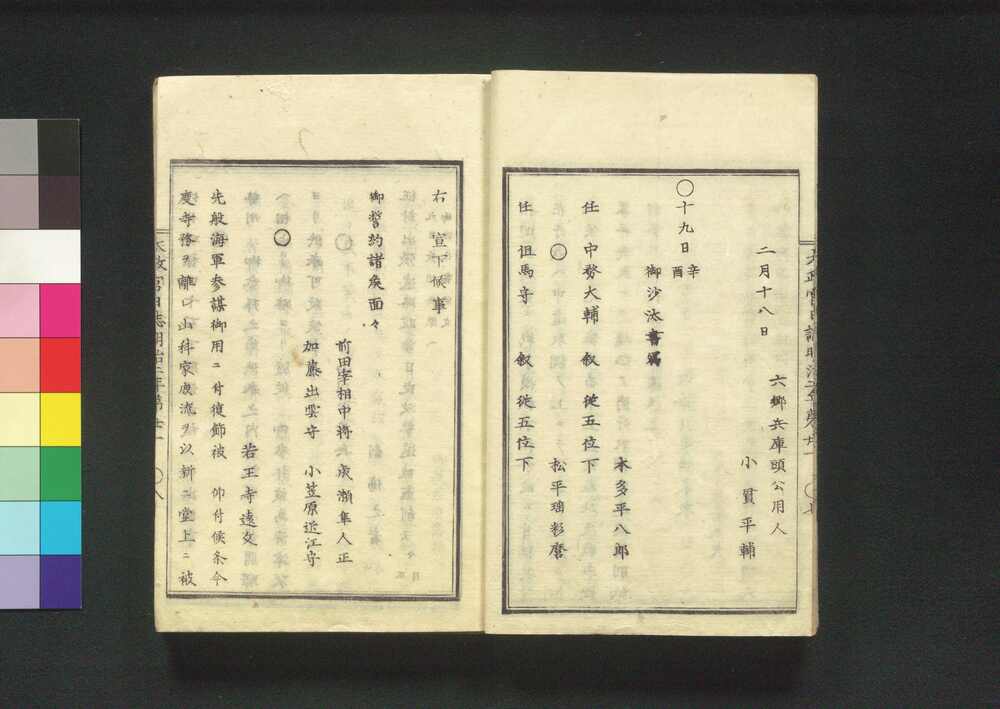 二月十八日　六郷兵庫頭公用人
小貫平輔
○十九日辛酉
御沙汰書寫
本多平八郎
任中務大輔　叙従五位下
○　松平瑶彩麿
任但馬守　叙従五位下
太政官日誌明治二年第廿一　○七
右　宣下候事
御誓約諸矦面々
前田宰相中將　成瀬隼人正
加藤出雲守　小笠原近江守
○　若王寺遠文
先般海軍参謀御用ニ付復飾被　仰付候条今
度寺務ヲ離レ山科家庶流ヲ以新ニ堂上ニ被
太政官日誌明治二年第廿一　○八